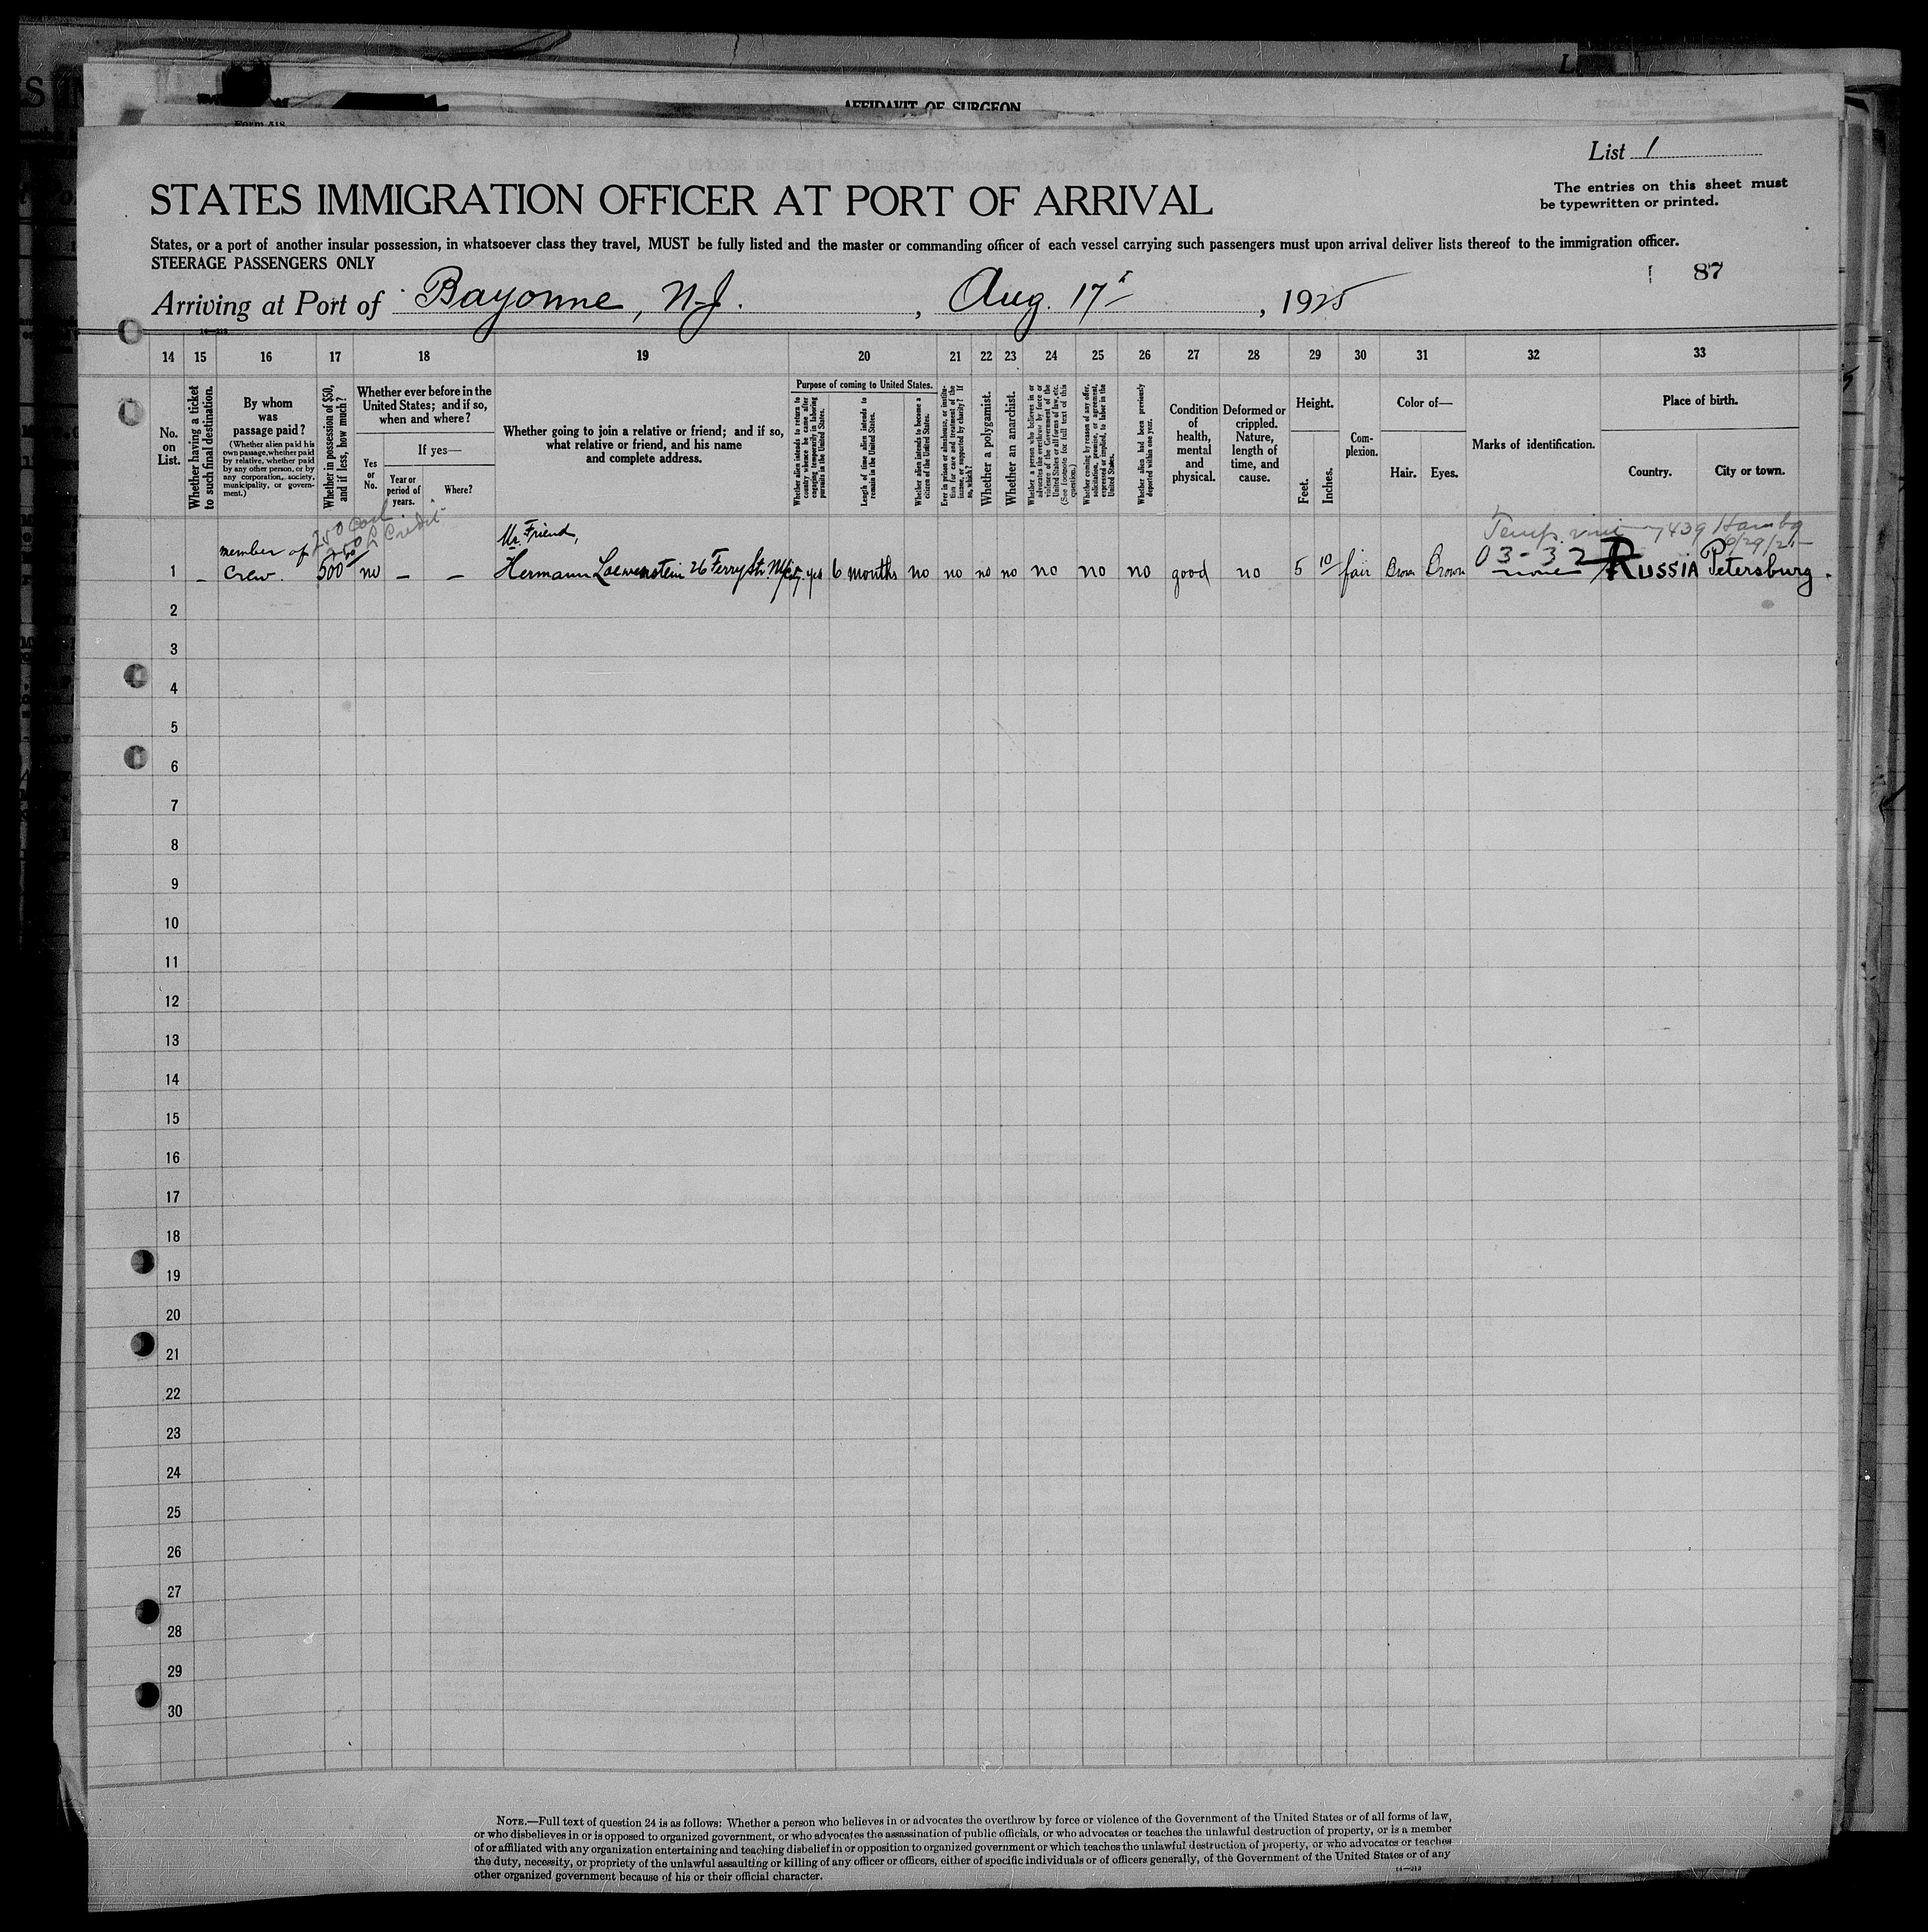 AFFIDAVIT OF SURGEON
Form 518
List 1
STATES IMMIGRATION OFFICER AT PORT OF ARRIVAL
The entries on this sheet must
be typewritten or printed.
States, or a port of another insular possession, in whatsoever class they travel, MUST be fully listed and the master or commanding officer of each vessel carrying such passengers must upon arrival deliver lists thereof to the immigration officer.
STEERAGE PASSENGERS ONLY
87
Arriving at Port of Bayonne, N.J. , Aug. 17 , 1925
14 15 16 17 18 19 20 21 22 23 24 25 26 27 28 29 30 31 32 33
No.
on
List.
Whether having a ticket
to such final destination.
By whom
was
passage paid?
(Whether alien paid his
own passage, whether paid
by relative, whether paid
by any other person, or by
any corporation, society,
municipality, or govern-
ment.)
Whether in possession of $50,
and if less, how much?
Whether ever before in the
United States; and if so,
when and where?
Yes
or
No.
If yes—
Year or
period of
years.
Where?
Whether going to join a relative or friend; and if so,
what relative or friend, and his name
and complete address.
Purpose of coming to United States.
Whether alien intends to return to
country whence he came after
engaging temporarily in laboring
pursuits in the United States.
Length of time alien intends to
remain in the United States.
Whether alien intends to become a
citizen of the United States.
Ever in prison or almshouse, or institu-
tion for care and treatment of the
insane, or supported by charity? If
so, which?
Whether a polygamist.
Whether an anarchist.
Whether a person who believes in or
advocates the overthrow by force or
violence of the Government of the
United States or all forms of law, etc.
(See footnote for full text of this
question.)
Whether coming by reason of any offer,
solicitation, promise, or agreement,
expressed or implied, to labor in the
United States.
Whether alien had been previously
deported within one year.
Condition
of
health,
mental
and
physical.
Deformed or
crippled.
Nature,
length of
time, and
cause.
Height.
Feet.
Inches.
Com-
plexion.
Color of—
Hair.
Eyes.
Marks of identification.
Place of birth.
Country.
City or town.
250 Cash
250 L Credit
Temp. visa 7439 Hambg
6/29/25
member of
Mr. Friend,
03-32
1 – crew. 500 no – – Hermann Loewenstein 26 Ferry Str. N.Y. City yes 6 months no no no no no no no good no 5 10 fair Brown Brown none RUSSIA Petersburg.
2
3
4
5
6
7
8
9
10
11
12
13
14
15
16
17
18
19
20
21
22
23
24
25
26
27
28
29
30
NOTE.—Full text of question 24 is as follows: Whether a person who believes in or advocates the overthrow by force or violence of the Government of the United States or of all forms of law,
or who disbelieves in or is opposed to organized government, or who advocates the assassination of public officials, or who advocates or teaches the unlawful destruction of property, or is a member
of or affiliated with any organization entertaining and teaching disbelief in or opposition to organized government or which teaches the unlawful destruction of property, or who advocates or teaches
the duty, necessity, or propriety of the unlawful assaulting or killing of any officer or officers, either of specific individuals or of officers generally, of the Government of the United States or of any
other organized government because of his or their official character.
14—213